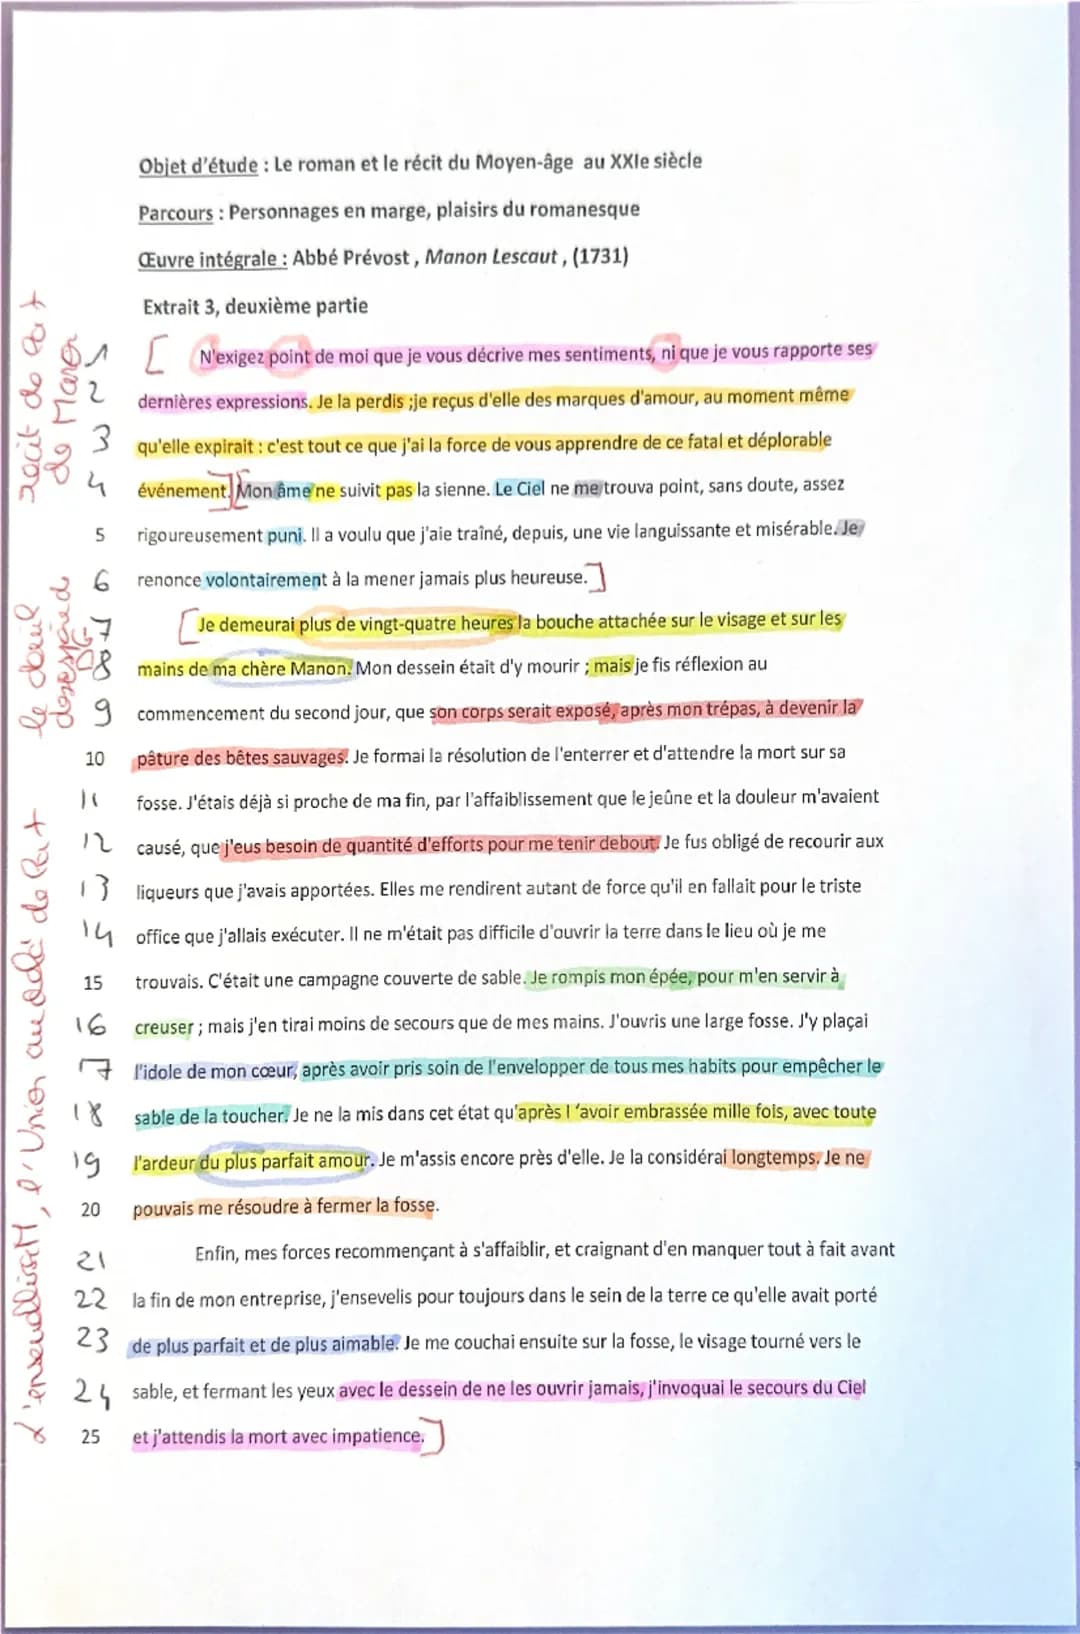 Objet d'étude : Le roman et le récit du Moyen-âge au XXIe siècle
Parcours : Personnages en marge, plaisirs du romanesque
Œuvre intégrale : Abbé Prévost , Manon Lescaut , (1731)
Extrait 3, deuxième partie
récit de la
de Manon
1 [ N'exigez point de moi que je vous décrive mes sentiments, ni que je vous rapporte ses
2 dernières expressions. Je la perdis ;je reçus d'elle des marques d'amour, au moment même
3 qu'elle expirait : c'est tout ce que j'ai la force de vous apprendre de ce fatal et déplorable
4 événement.][Mon âme ne suivit pas la sienne. Le Ciel ne me trouva point, sans doute, assez
5 rigoureusement puni. Il a voulu que j'aie traîné, depuis, une vie languissante et misérable. Je
6 renonce volontairement à la mener jamais plus heureuse.]
le deuil
DG
7 [Je demeurai plus de vingt-quatre heures la bouche attachée sur le visage et sur les
8 mains de ma chère Manon. Mon dessein était d'y mourir ; mais je fis réflexion au
9 commencement du second jour, que son corps serait exposé, après mon trépas, à devenir la
10 pâture des bêtes sauvages. Je formai la résolution de l'enterrer et d'attendre la mort sur sa
11 fosse. J'étais déjà si proche de ma fin, par l'affaiblissement que le jeûne et la douleur m'avaient
12 causé, que j'eus besoin de quantité d'efforts pour me tenir debout. Je fus obligé de recourir aux
13 liqueurs que j'avais apportées. Elles me rendirent autant de force qu'il en fallait pour le triste
14 office que j'allais exécuter. Il ne m'était pas difficile d'ouvrir la terre dans le lieu où je me
15 trouvais. C'était une campagne couverte de sable. Je rompis mon épée, pour m'en servir à
16 creuser ; mais j'en tirai moins de secours que de mes mains. J'ouvris une large fosse. J'y plaçai
17 l'idole de mon cœur, après avoir pris soin de l'envelopper de tous mes habits pour empêcher le
18 sable de la toucher. Je ne la mis dans cet état qu'après l 'avoir embrassée mille fois, avec toute
19 l'ardeur du plus parfait amour. Je m'assis encore près d'elle. Je la considérai longtemps. Je ne
20 pouvais me résoudre à fermer la fosse.
L'ensevelissemt, l'Union au delà de la
21 Enfin, mes forces recommençant à s'affaiblir, et craignant d'en manquer tout à fait avant
22 la fin de mon entreprise, j'ensevelis pour toujours dans le sein de la terre ce qu'elle avait porté
23 de plus parfait et de plus aimable. Je me couchai ensuite sur la fosse, le visage tourné vers le
24 sable, et fermant les yeux avec le dessein de ne les ouvrir jamais, j'invoquai le secours du Ciel
25 et j'attendis la mort avec impatience.]